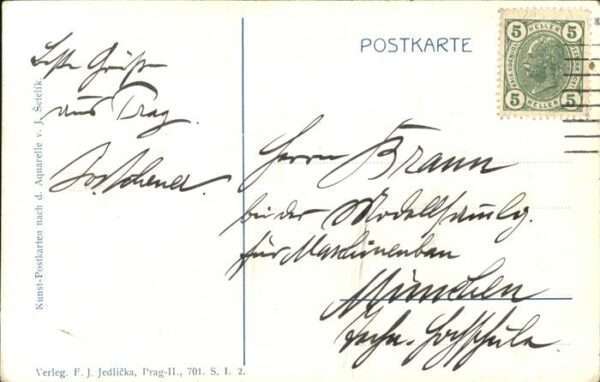 POSTKARTE
5 5
HELLER
5 HELLER 5
Beste Grüße
aus Prag.
Herrn Braun
bei der Modellsamlg.
für Maschinenbau
München
Techn. Hochschule.
Kunst-Postkarten nach d. Aquarelle v. J. Šetelík.
Verleg. F. J. Jedlička, Prag-II., 701. S. I. 2.